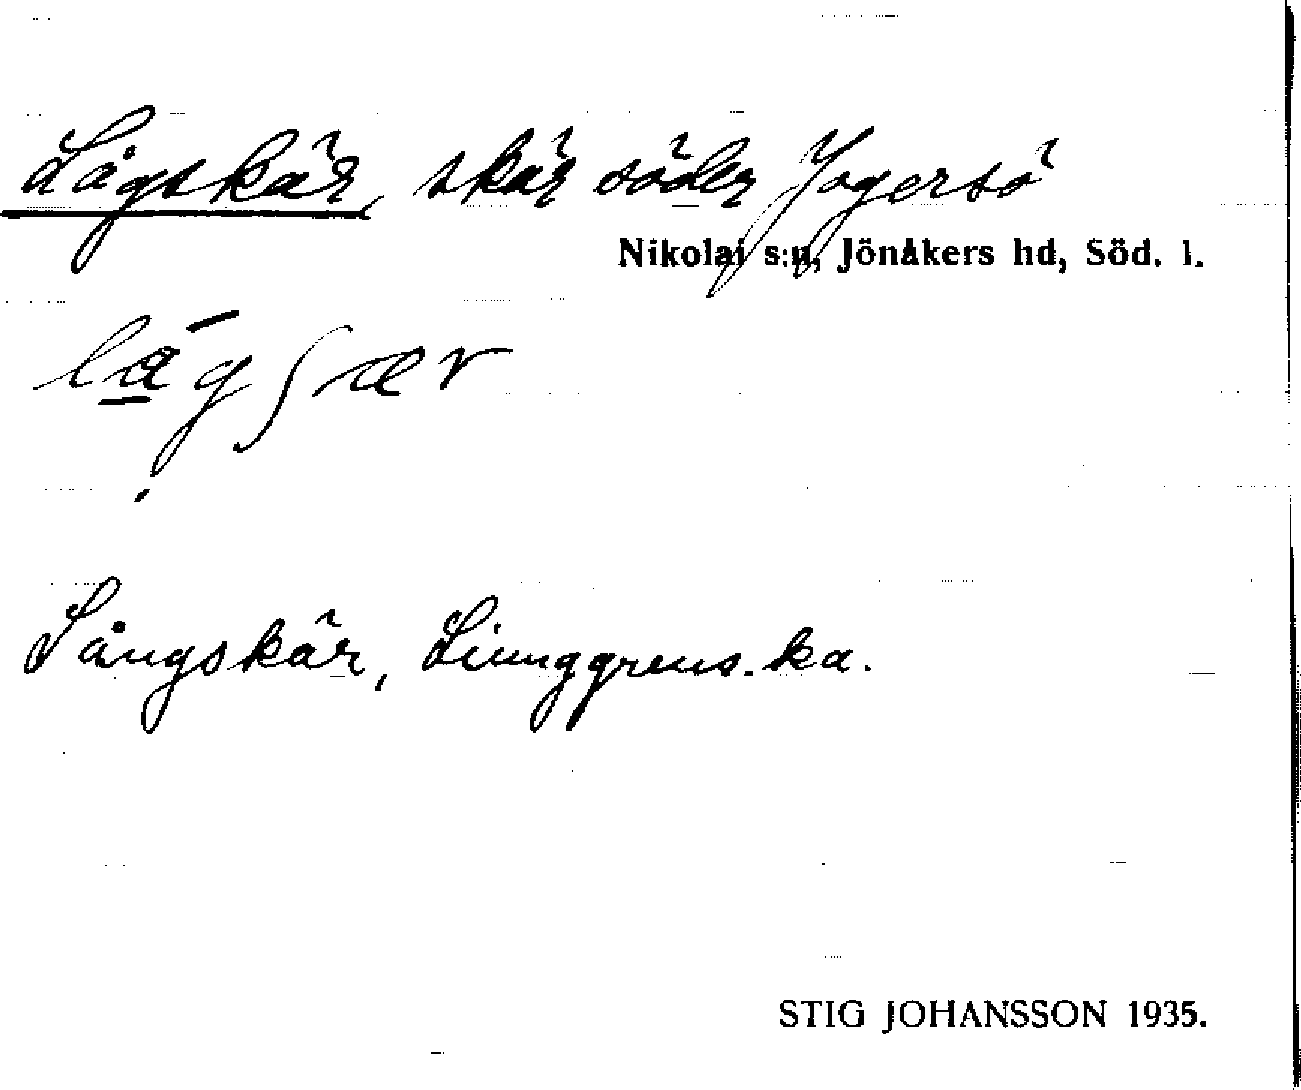 Lågskär, skär söder Jogersö
Nikolai s:n, Jönåkers hd, Söd. l.
Långskär, Liunggrens. ka.
STIG JOHANSSON 1935.